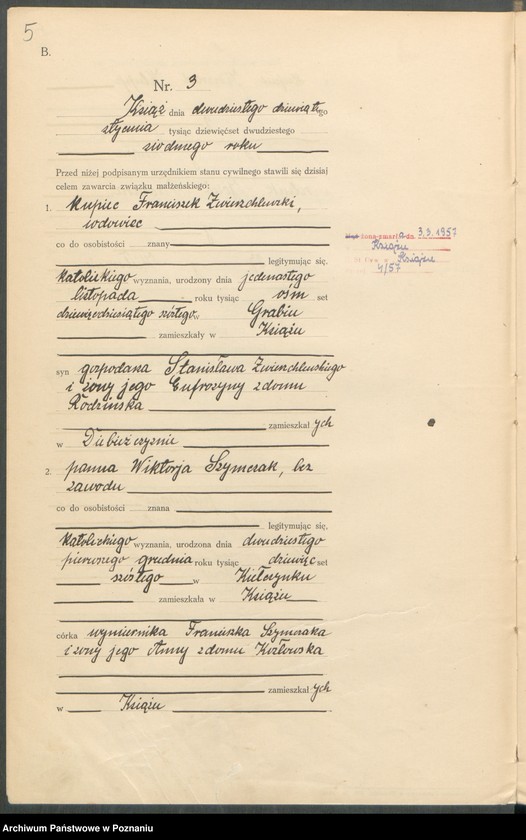 5
B.
Nr. 3
Książ dnia dwudziestego dziewiątego
stycznia tysiąc dziewięćset dwudziestego
siodmego roku
Przed niżej podpisanym urzędnikiem stanu cywilnego stawili się dzisiaj
celem zawarcia związku małżeńskiego:
1. kupiec Franciszek Zwierzchlewski,
wdowiec
co do osobistości znany
legitymując się,
katolickiego wyznania, urodzony dnia jedenastego
listopada roku tysiąc ośm set
dziewięćdziesiątego szóstego w Grabiu
zamieszkały w Książu
syn gospodarza Stanisława Zwierzchlewskiego
i żony jego Eufrozyny z domu
Rodzińska
zamieszkał ych
w
2. panna Wiktorja Szymczak, bez
zawodu
co do osobistości znana
legitymując się,
katolickiego wyznania, urodzona dnia dwudziestego
pierwszego grudnia roku tysiąc dziewięć set
szóstego w Kiełczynku
zamieszkała w Książu
córka Franciszka Szymczaka
i żony jego Anny z domu Kozłowska
zamieszkał ych
w Książu
żona zmarła dn. 3.3.1957
Książu
Książu
4/57
Archiwum Państwowe w Poznaniu